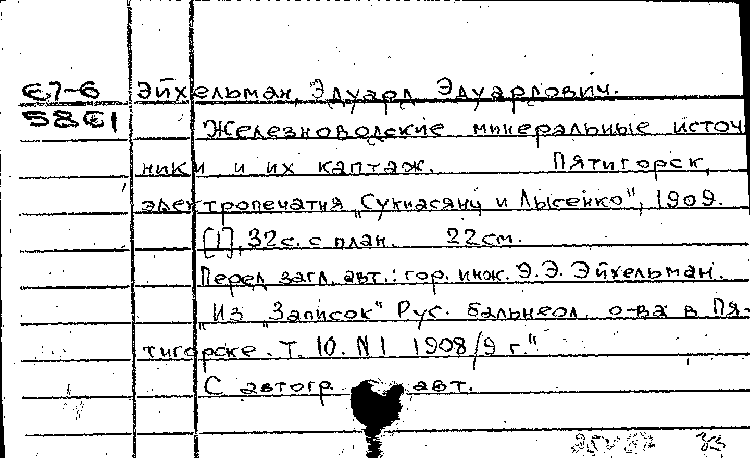 Е7-6 Эйхельман, Эдуард Эдуардович.
58Е1 Железноводские минеральные источ
ники и их каптаж. Пятигорск,
электропечатня „Сукиасянц и Лысенко", 1909.
[1], 32с. с план. 22см.
Перед загл. авт.: гор. инж. Э.Э. Эйхельман.
„Из „Записок" Рус. бальнеол. о-ва в Пя-
тигорске. Т. 10. N1 1908/9 г."
С автогр. авт.